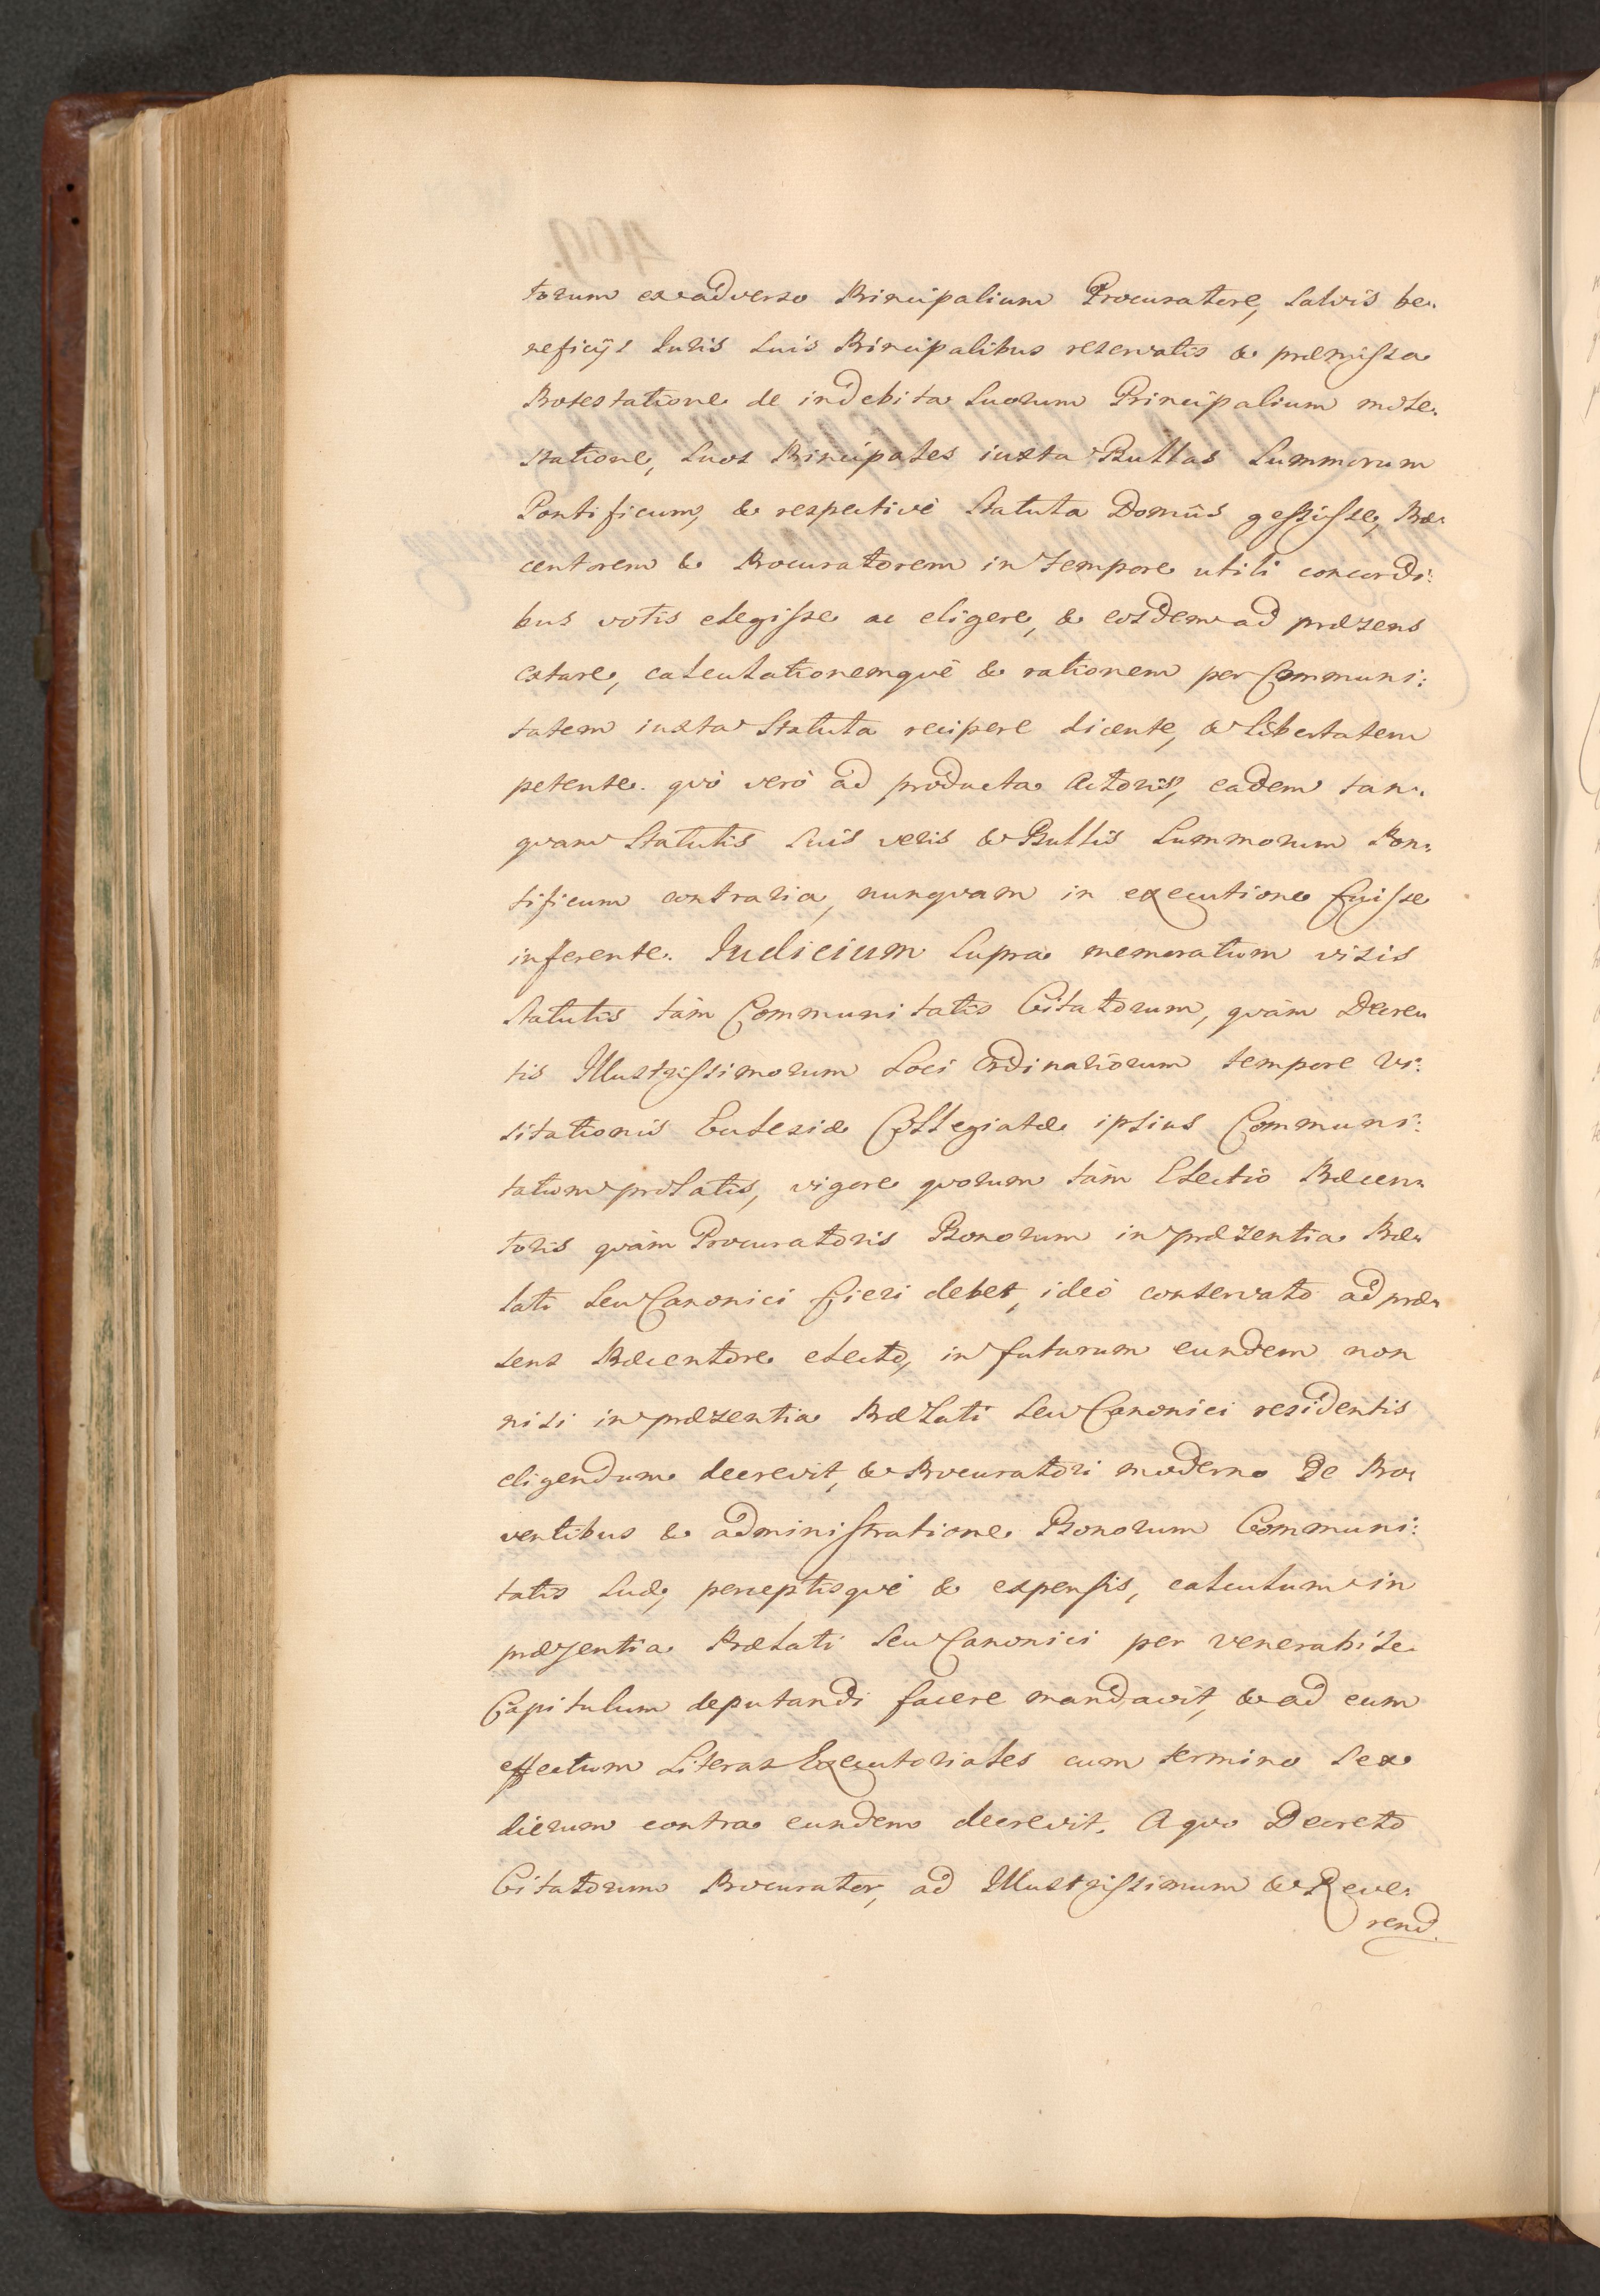 torum ex adverso Principalium Procuratore, salvis be„
neficijs Iuris suis Principalibus reservatis & præmissa
Protestatione de indebita suorum Principalium mole„
statione, suos Principales iuxta Bullas Summorum
Pontificum, & respectivè Statuta Domûs gessisse, Præ„
centorem & Procuratorem in tempore utili concordi:
bus votis elegisse ac eligere, & eosdem ad præsens
extare, calculationemquè & rationem per Communi:
tatem iuxta Statuta recipere dicente, & libertatem
petente. quò verò ad producta Actoris, eadem tan„
qvam Statutis suis veris & Bullis Summorum Pon„
tificum contraria, nunqvam in executione fuisse
inferente. Iudicium supra memoratum visis
Statutis tàm Communitatis Citatorum, qvàm Decre„
tis Illustrissimorum Loci Ordinariorum tempore Vi:
sitationis Ecclesiæ Collegiatæ ipsius Communi:
tatum prolatis, vigore qvorum tàm Electio Præcen„
toris qvàm Procuratoris Bonorum in præsentia Præ„
lati seu Canonici fieri debet, ideò conservato ad præ„
sens Præcentore electo, in futurum eundem non
nisi in præsentia Prælati seu Canonici residentis
eligendum decrevit, & Procuratori moderno de Pro„
ventibus & administratione Bonorum Communi:
tatis suæ, perceptisquè & expensis, calculum in
præsentia Prælati seu Canonici per Venerabile
Capitulum deputandi facere mandavit, & ad eum
effectum Literas Executoriales cum termino sex
dierum contra eundem decrevit. A qvo Decreto
Citatorum Procurator, ad Illustrissimum & Reve„
rend.